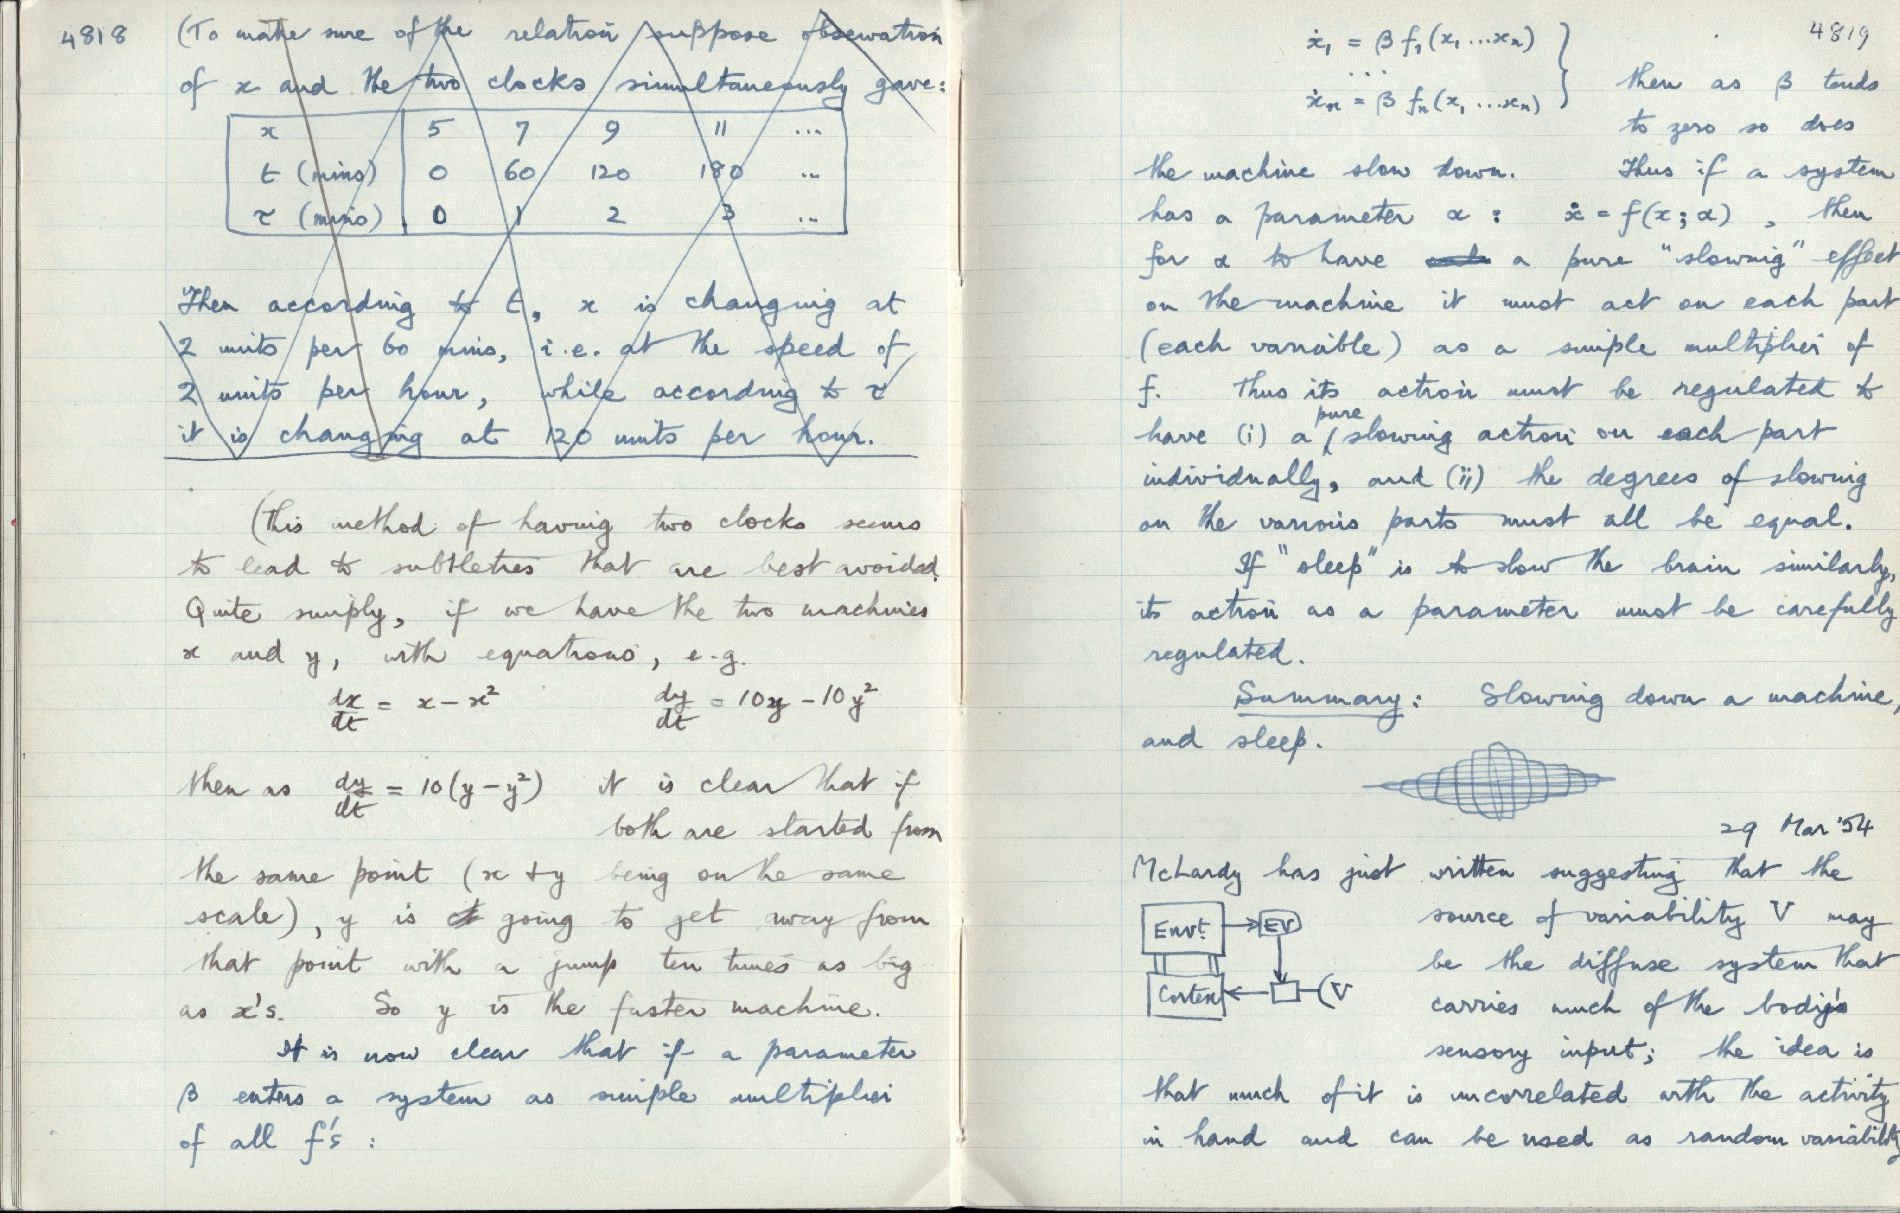 4818
(To make sure of the relation suppose observation
of x and the two clocks simultaneously gave:
x 5 7 9 11 ...
t (mins) 0 60 120 180 ..
τ (mins) 0 1 2 3 ...
Then according to t, x is changing at
2 units per 60 mins, i.e. at the speed of
2 units per hour, while according to τ
it is changing at 120 units per hour.
(This method of having two clocks seems
to lead to subtleties that are best avoided.
Quite simply, if we have the two machines
x and y, with equations, e.g.
dx/dt = x - x² dy/dt = 10y - 10y²
then as dy/dt = 10(y - y²) it is clear that if
both are started from
the same point (x + y being on the same
scale), y is going to get away from
that point with a jump ten times as big
as x's. So y is the faster machine.
It is now clear that if a parameter
β enters a system as simple multiplier
of all f's :
4819
ẋ₁ = β f₁(x₁ ... xₙ)
...
ẋₙ = β fₙ(x₁ ... xₙ)
then as β tends
to zero so does
the machine slow down. Thus if a system
has a parameter α : ẋ = f(x; α) , then
for α to have a pure "slowing" effect
on the machine it must act on each part
(each variable) as a simple multiplier of
f. Thus its action must be regulated to
have (i) a pure slowing action on each part
individually, and (ii) the degrees of slowing
on the various parts must all be equal.
If "sleep" is to slow the brain similarly,
its action as a parameter must be carefully
regulated.
Summary: Slowing down a machine,
and sleep.
29 Mar '54
McHardy has just written suggesting that the
source of variability V may
be the diffuse system that
carries much of the body's
sensory input; the idea is
Envt. EV
Cortex V
that much of it is uncorrelated with the activity
in hand and can be used as random variability